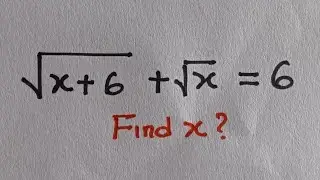 √(x+6) + √x = 6
Find x?